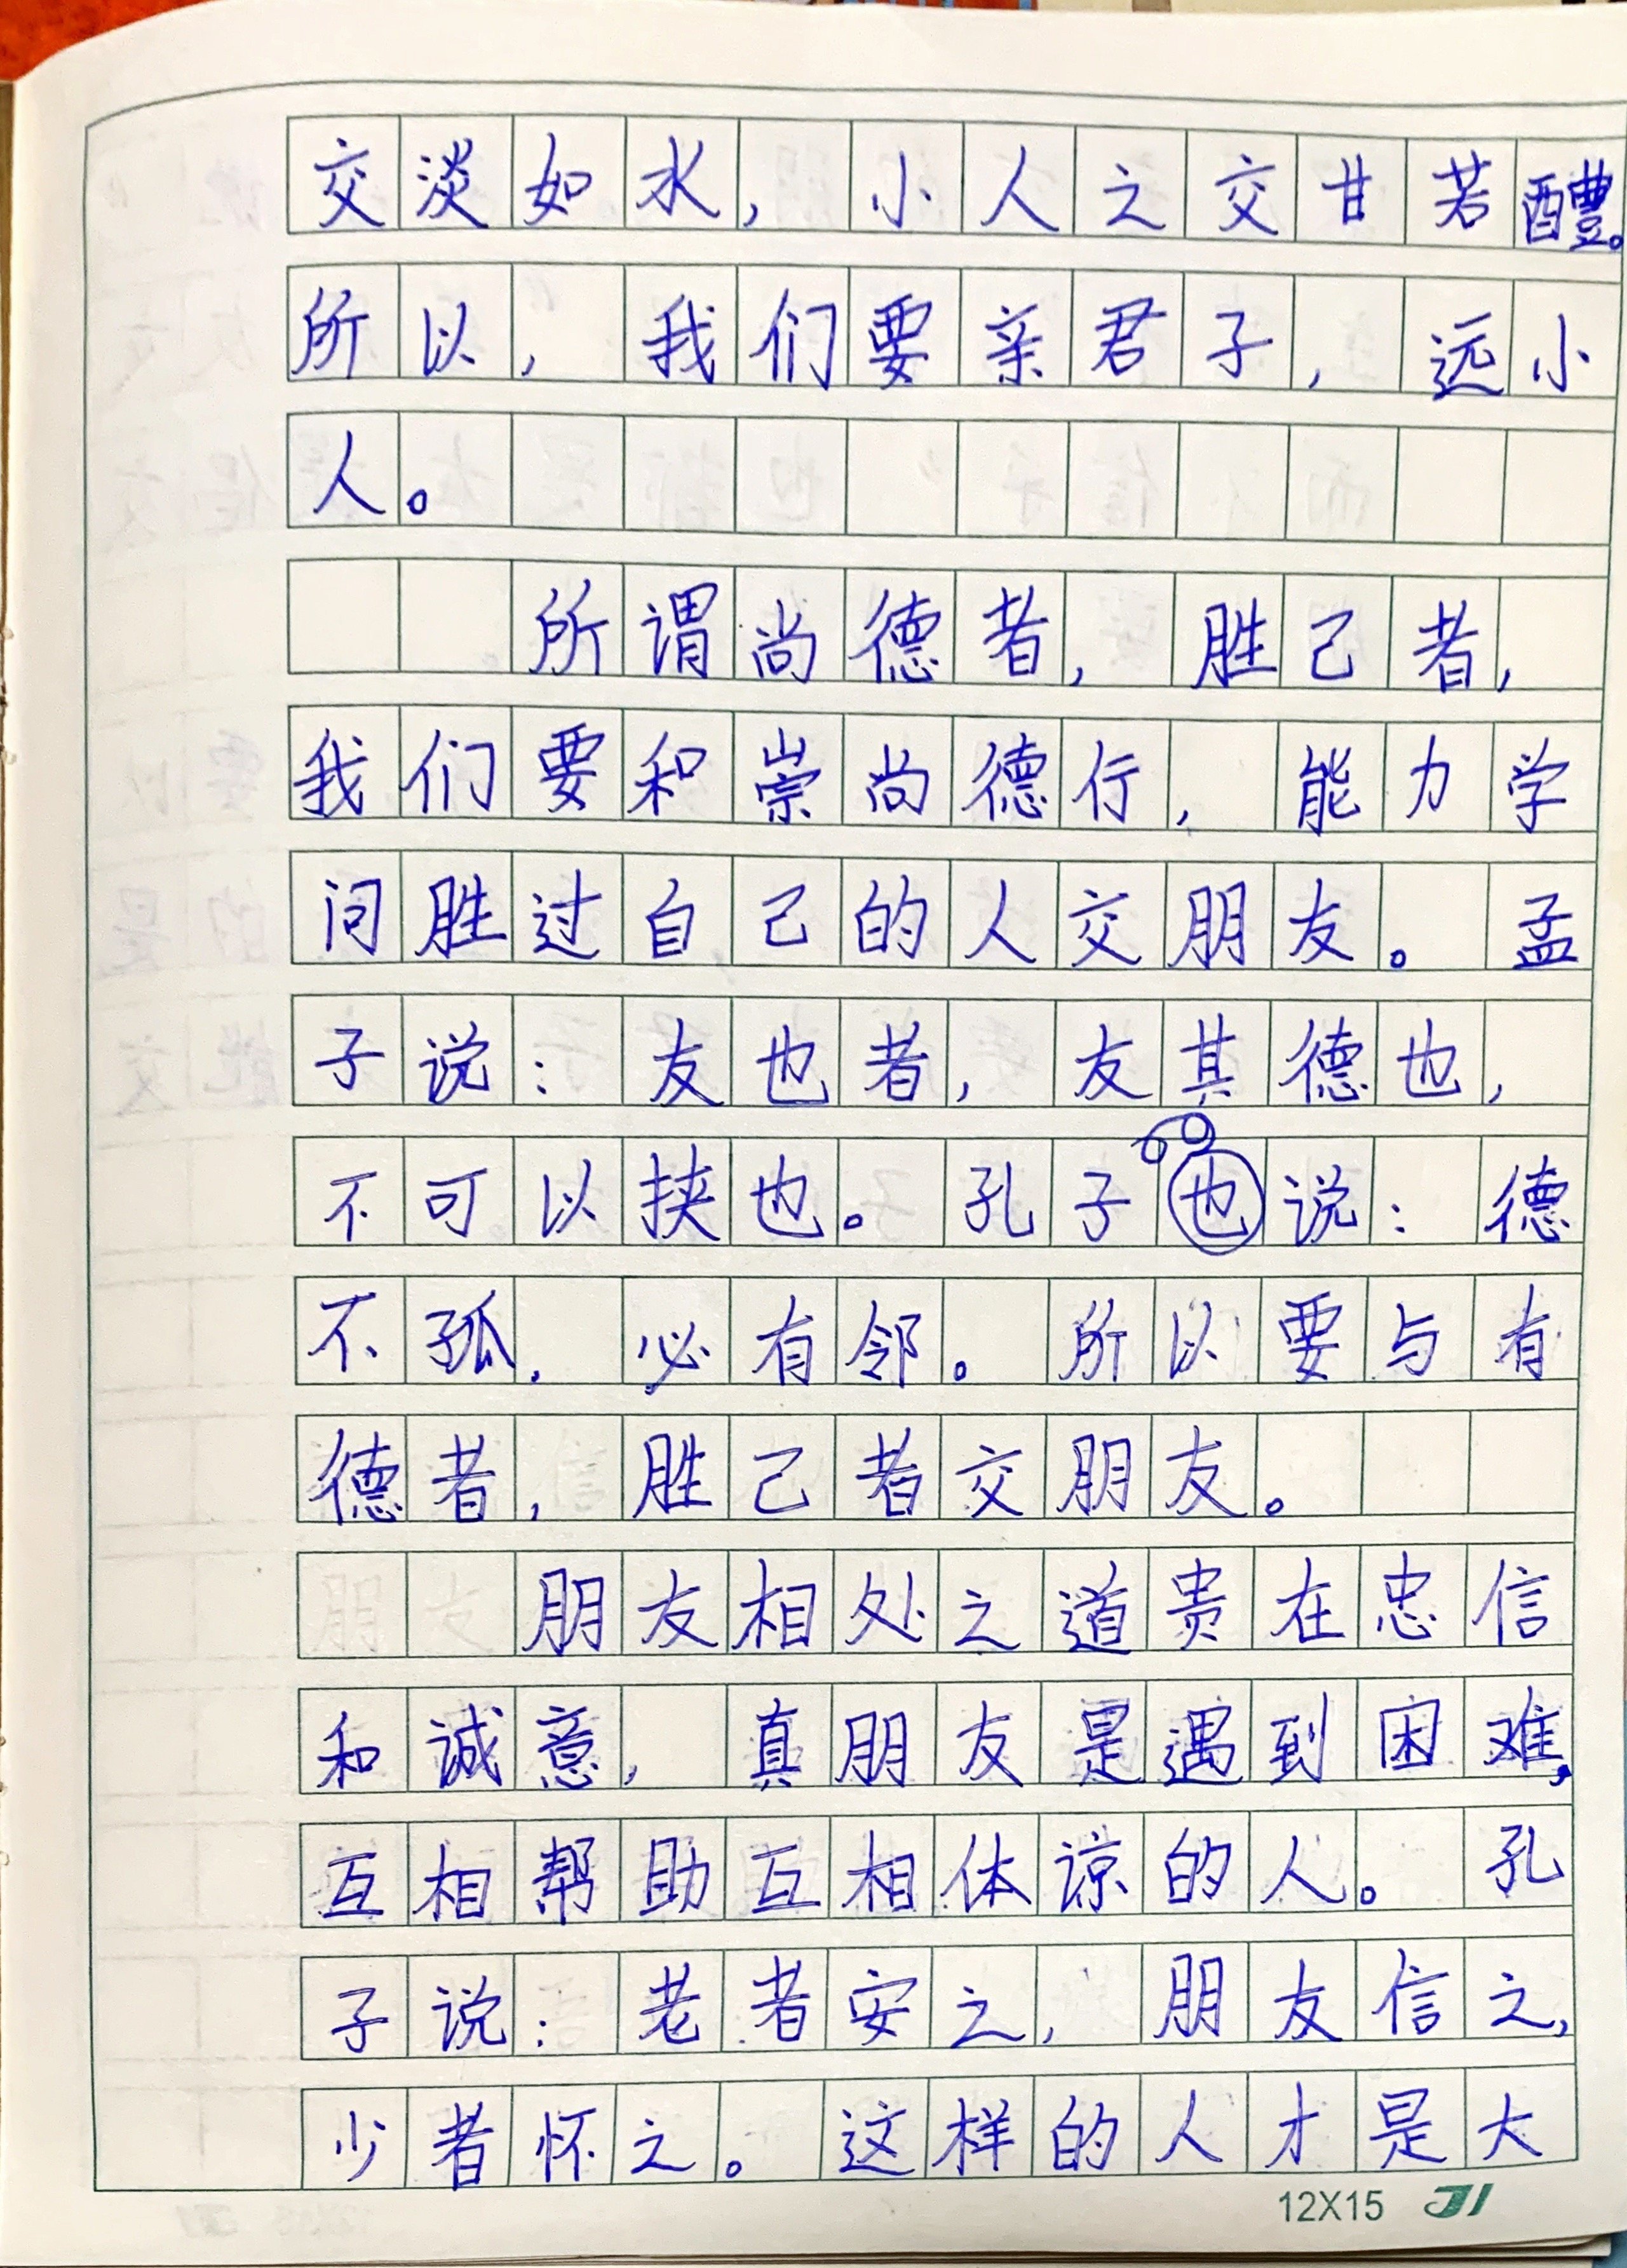 交淡如水，小人之交甘若醴。
所以，我们要亲君子，远小
人。
所谓尚德者，胜己者，
我们要和崇尚德行，能力学
问胜过自己的人交朋友。孟
子说：友也者，友其德也，
不可以挟也。孔子也说：德
不孤，必有邻。所以要与有
德者，胜己者交朋友。
朋友相处之道贵在忠信
和诚意，真朋友是遇到困难，
互相帮助互相体谅的人。孔
子说：老者安之，朋友信之，
少者怀之。这样的人才是大
12X15 JI